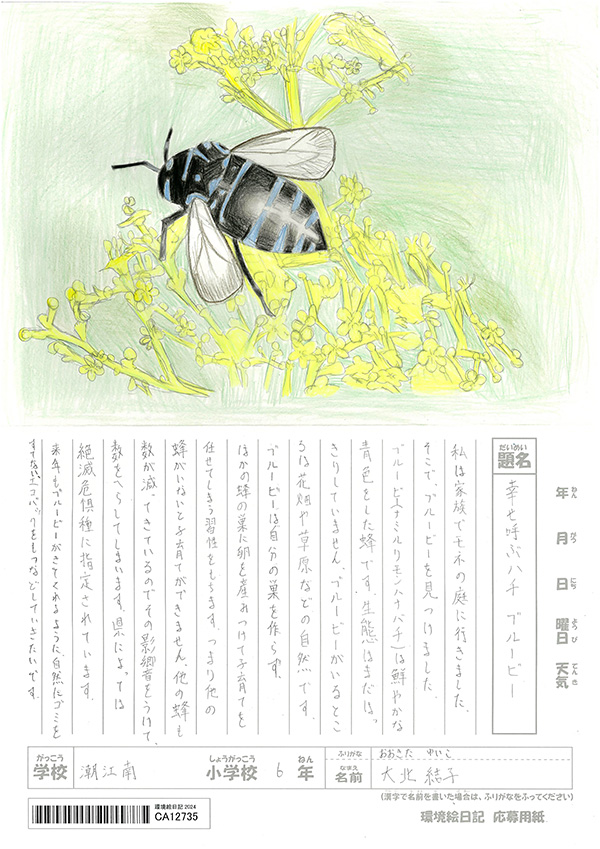 だいめい
題名
幸せ呼ぶハチ ブルービー
年 ねん
月 がつ
日 にち
曜日 ようび
天気 てんき
私は家族でモネの庭に行きました。
そこで、ブルービーを見つけました。
ブルービー(ナミルリモンハナバチ)は鮮やかな
青色をした蜂です。生態はまだはっ
きりしていません。ブルービーがいるとこ
ろは花畑や草原などの自然です。
ブルービーは自分の巣を作らず、
ほかの蜂の巣に卵を産みつけて子育てを
任せてしまう習性をもちます。つまり他の
蜂がいないと子育てができません。他の蜂も
数が減ってきているのでその影響をうけて、
数をへらしてしまいます。県によっては
絶滅危惧種に指定されています。
来年もブルービーがきてくれるように、自然にゴミを
すてない、エコバックをもつなどしていきたいです。
がっこう
学校 潮江南
しょうがっこう
小学校
6
ねん
年
ふりがな おおきた ゆいこ
なまえ
名前 大北 結子
(漢字で名前を書いた場合は、ふりがなをふってください)
環境絵日記 2024
CA12735
環境絵日記 応募用紙